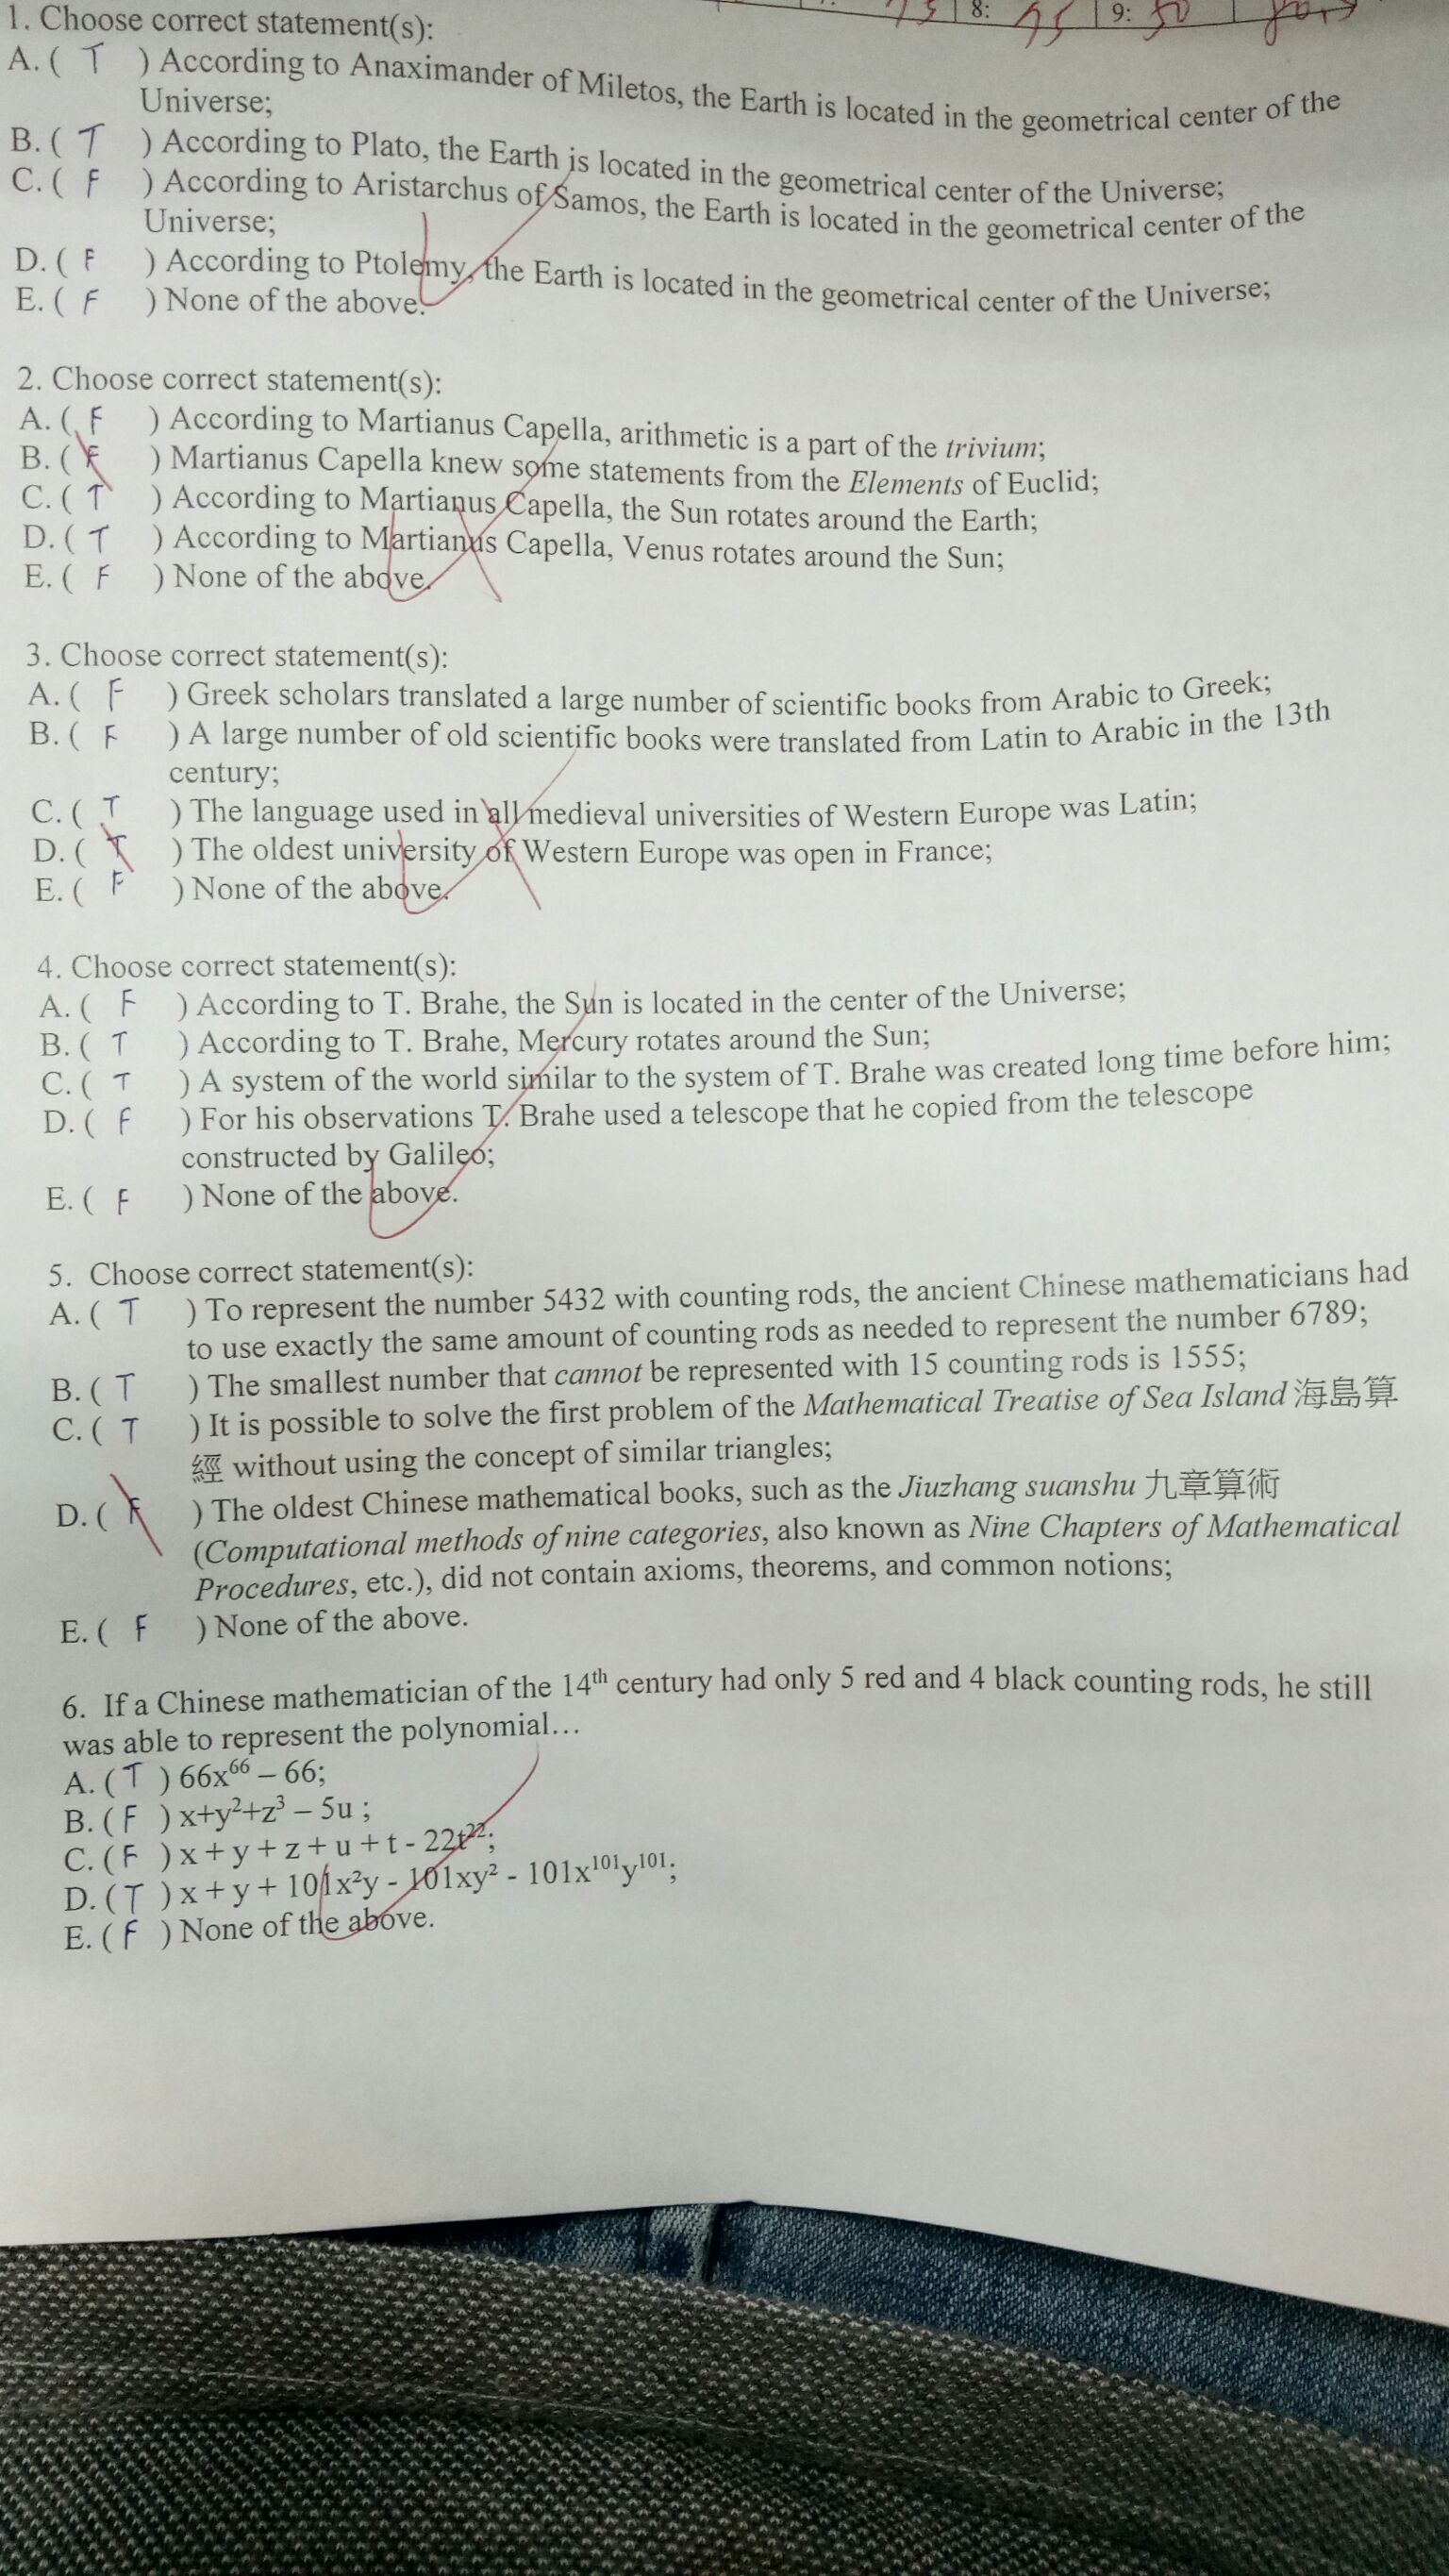 8: 95 9: 50
1. Choose correct statement(s):
A. ( T ) According to Anaximander of Miletos, the Earth is located in the geometrical center of the
Universe;
B. ( T ) According to Plato, the Earth is located in the geometrical center of the Universe;
C. ( F ) According to Aristarchus of Samos, the Earth is located in the geometrical center of the
Universe;
D. ( F ) According to Ptolemy, the Earth is located in the geometrical center of the Universe;
E. ( F ) None of the above.
2. Choose correct statement(s):
A. ( F ) According to Martianus Capella, arithmetic is a part of the trivium;
B. ( F ) Martianus Capella knew some statements from the Elements of Euclid;
C. ( T ) According to Martianus Capella, the Sun rotates around the Earth;
D. ( T ) According to Martianus Capella, Venus rotates around the Sun;
E. ( F ) None of the above.
3. Choose correct statement(s):
A. ( F ) Greek scholars translated a large number of scientific books from Arabic to Greek;
B. ( F ) A large number of old scientific books were translated from Latin to Arabic in the 13th
century;
C. ( T ) The language used in all medieval universities of Western Europe was Latin;
D. ( T ) The oldest university of Western Europe was open in France;
E. ( F ) None of the above.
4. Choose correct statement(s):
A. ( F ) According to T. Brahe, the Sun is located in the center of the Universe;
B. ( T ) According to T. Brahe, Mercury rotates around the Sun;
C. ( T ) A system of the world similar to the system of T. Brahe was created long time before him;
D. ( F ) For his observations T. Brahe used a telescope that he copied from the telescope
constructed by Galileo;
E. ( F ) None of the above.
5. Choose correct statement(s):
A. ( T ) To represent the number 5432 with counting rods, the ancient Chinese mathematicians had
to use exactly the same amount of counting rods as needed to represent the number 6789;
B. ( T ) The smallest number that cannot be represented with 15 counting rods is 1555;
C. ( T ) It is possible to solve the first problem of the Mathematical Treatise of Sea Island 海島算
經 without using the concept of similar triangles;
D. ( F ) The oldest Chinese mathematical books, such as the Jiuzhang suanshu 九章算術
(Computational methods of nine categories, also known as Nine Chapters of Mathematical
Procedures, etc.), did not contain axioms, theorems, and common notions;
E. ( F ) None of the above.
6. If a Chinese mathematician of the 14th century had only 5 red and 4 black counting rods, he still
was able to represent the polynomial…
A. ( T ) 66x⁶⁶ – 66;
B. ( F ) x+y²+z³ – 5u ;
C. ( F ) x + y + z + u + t - 22t²²;
D. ( T ) x + y + 101x²y - 101xy² - 101x¹⁰¹y¹⁰¹;
E. ( F ) None of the above.